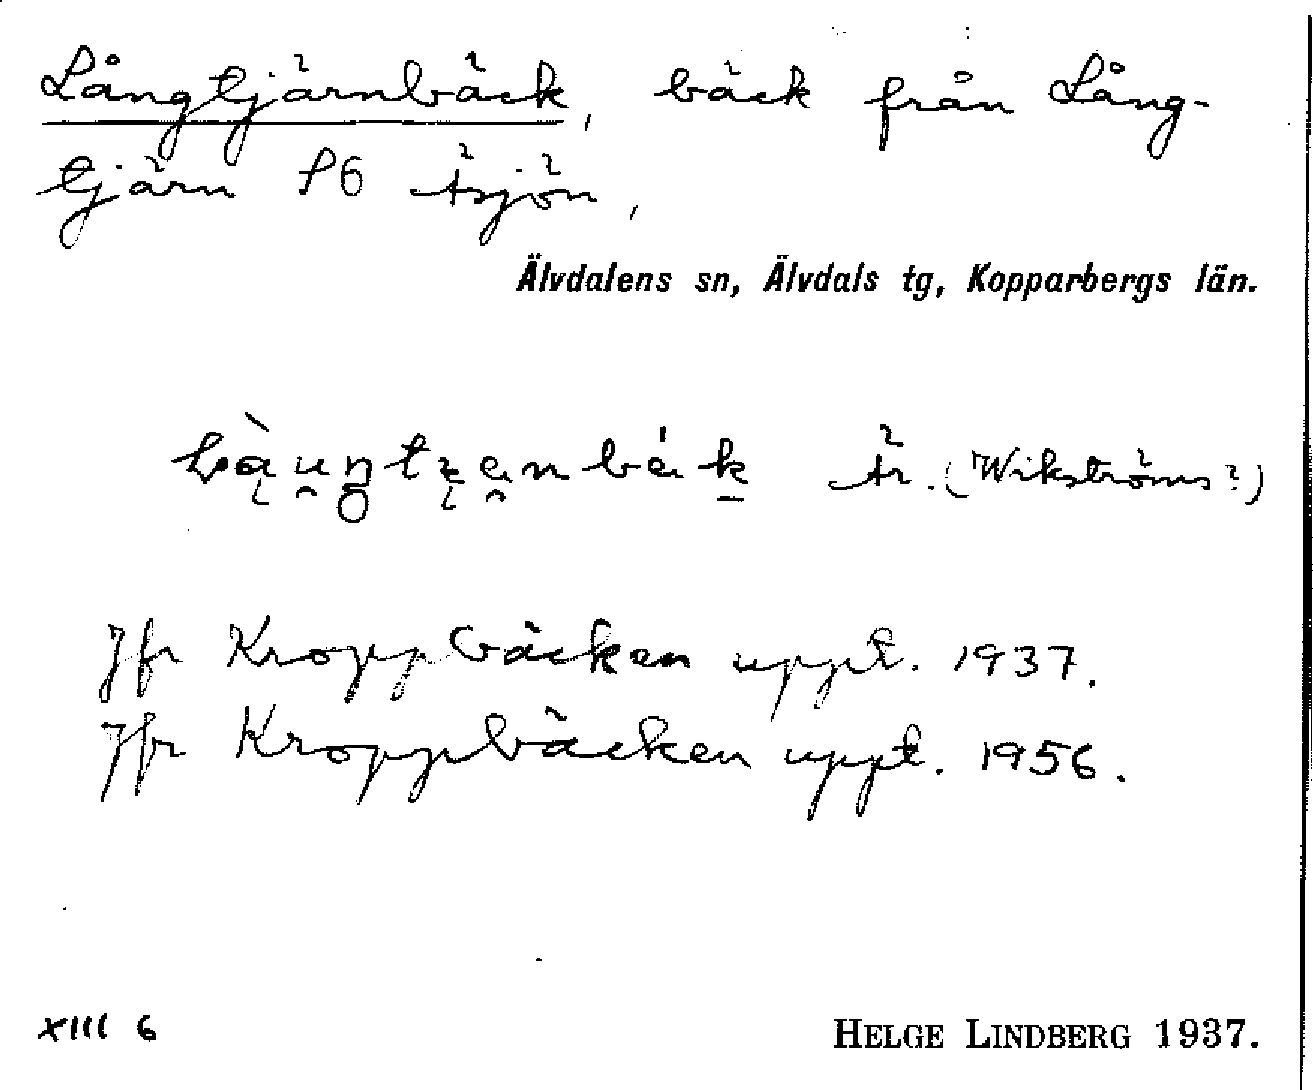 Långtjärnbäck, bäck från Lång-
tjärn S6 Äsjön,
Älvdalens sn, Älvdals tg, Kopparbergs län.
Är. (Wikströms?)
Jfr Kroppbäcken uppt. 1937.
Jfr Kroppbäcken uppt. 1956.
XIII 6
HELGE LINDBERG 1937.